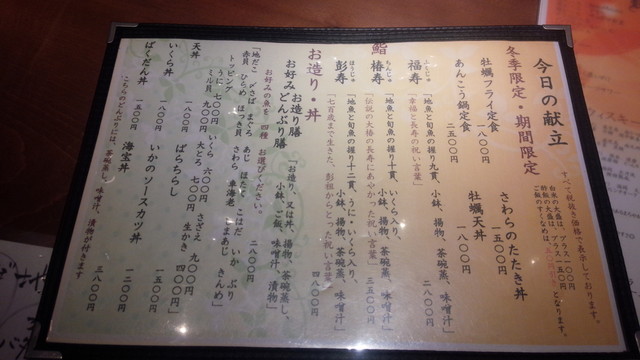 今日の献立
すべて税抜き価格で表示しております。
冬季限定・期間限定
牡蠣フライ定食
一八〇〇円
さわらのたたき丼
一五〇〇円
あんこう鍋定食
二五〇〇円
牡蠣天丼
一八〇〇円
鮨
ふくじゅ
福寿
「地魚と旬魚の握り九貫、小鉢、揚物、茶碗蒸、味噌汁」
幸福と長寿の祝い言葉」
二八〇〇円
ちんじゅ
椿寿
「地魚と旬魚の握り十貫、いくら入り、小鉢、揚物、茶碗蒸、味噌汁」
伝説の大椿の長寿にあやかった祝い言葉」
三五〇〇円
ほうじゅ
彭寿
「地魚と旬魚の握り十二貫、うに・いくら入り、小鉢、揚物、茶碗蒸、味噌汁」
「七百歳まで生きた、彭祖からとった祝い言葉」
四八〇〇円
お造り・丼
お造り膳
お好みどんぶり膳
「お造り、又は丼、揚物、茶碗蒸し、小鉢、ご飯、味噌汁、漬物」
お好みの魚を 四種 お選びください。
二八〇〇円
「地だこ 〆さば まぐろ あじ ほたて こはだ いか ぶり
赤貝 ひらめ ほっき貝 さわら 車海老 しまあじ きんめ」
トッピング
うに 七〇〇円 いくら 六〇〇円 さざえ 九〇〇円
ミル貝 九〇〇円 大とろ 七〇〇円 生かき 四〇〇円」
天丼
一八〇〇円
ばらちらし
一五〇〇円
いくら丼
一八〇〇円
いかのソースカツ丼
一二〇〇円
ばくだん丼
一五〇〇円
海宝丼
三八〇〇円
こちらのどんぶりには、茶碗蒸し、味噌汁、漬物が付きます